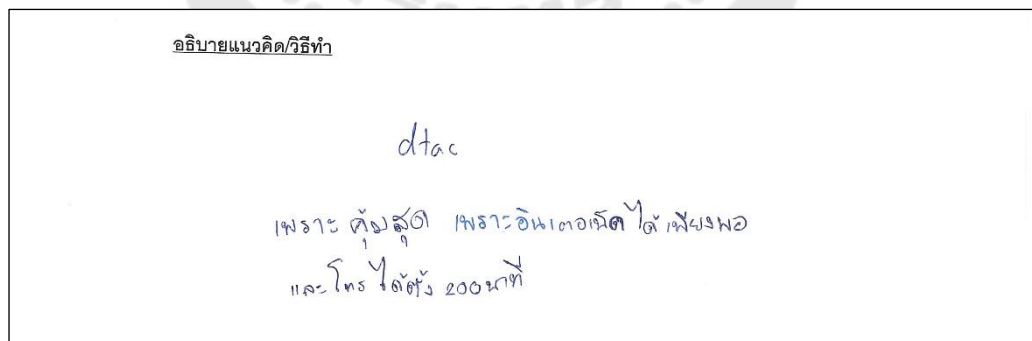 อธิบายแนวคิด/วิธีทำ
dtac
เพราะ คุ้มสุด เพราะอินเตอเน็ตได้ เพียงพอ
และโทร ได้ตั้ง 200 นาที